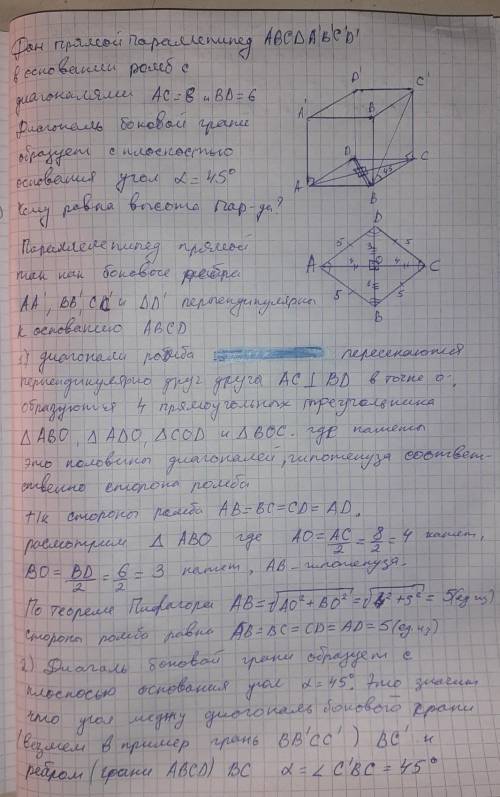 Дан прямой параллепипед ABCDA'B'C'D'
в основании ромб с
диагоналями AC=8 и BD=6
Диагональ боковой грани
образует с плоскостью
основания угол α=45°
Чему равна высота пар-да?
D' C'
A' B
D C
A 45
B
Параллелепипед прямой
так как боковые ребра
AA', BB', CC' и DD' перпендикулярны
к основанию ABCD
D
5 5
3
A 4 O 4 C
3
5 5
B
1) диагонали ромба пересекаются
перпендикулярно друг друга AC⊥BD в точке O,
образуются 4 прямоугольных треугольника
△ABO, △ADO, △COD и △BOC. где катеты
это половины диагоналей, гипотенуза соответ-
ственно сторона ромба
т/к стороны ромба AB=BC=CD=AD.
расмотрим △ABO где AO=AC/2=8/2=4 катет,
BO=BD/2=6/2=3 катет, AB-гипотенуза.
По теореме Пифагора AB=√AO²+BO²=√4²+3²=5(ед.из)
стороны ромба равна AB=BC=CD=AD=5(ед.из)
2) Диагаль боковой грани образует с
плоскосью основания угол α=45°. Это значит
что угол между диагональ бокового грани
(возмем в пример грань BB'CC') BC' и
ребром (грани ABCD) BC α=∠C'BC=45°